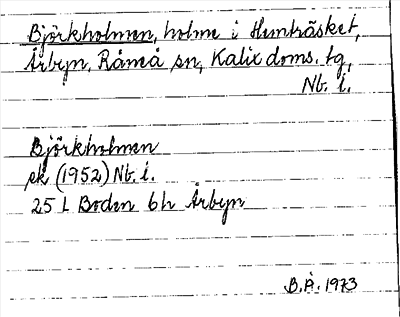 Björkholmen, holme i Hemträsket,
Årbyn, Råneå sn, Kalix doms. tg,
Nb. l.
Björkholmen
ek (1952) Nb. l.
25 L Boden 6h Årbyn
B.Å. 1973